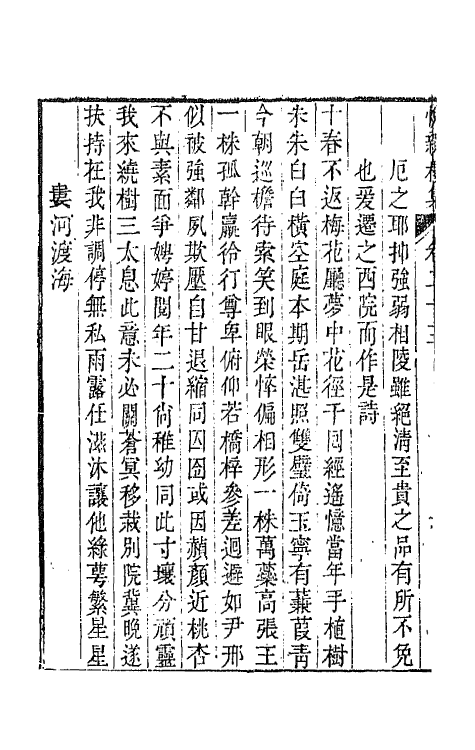 厄之耶抑強弱相陵雖絕清至貴之品有所不免
也爰遷之西院而作是詩
十春不返梅花廳夢中花徑千回經遙憶當年手植樹
朱朱白白橫空庭本期岳湛照雙璧倚玉寧有蒹葭靑
今朝巡檐待索笑到眼榮悴偏相形一株萬蘂高張王
一株孤幹羸伶仃尊卑俯仰若橋梓參差迴避如尹邢
似被強鄰夙欺壓自甘退縮同囚囹或因赬顏近桃杏
不與素面爭娉婷閱年二十尙稚幼同此寸壤分頑靈
我來繞樹三太息此意未必關蒼冥移栽別院冀晚遂
扶持在我非調停無私雨露任滋沐讓他綠萼繁星星
婁河渡海